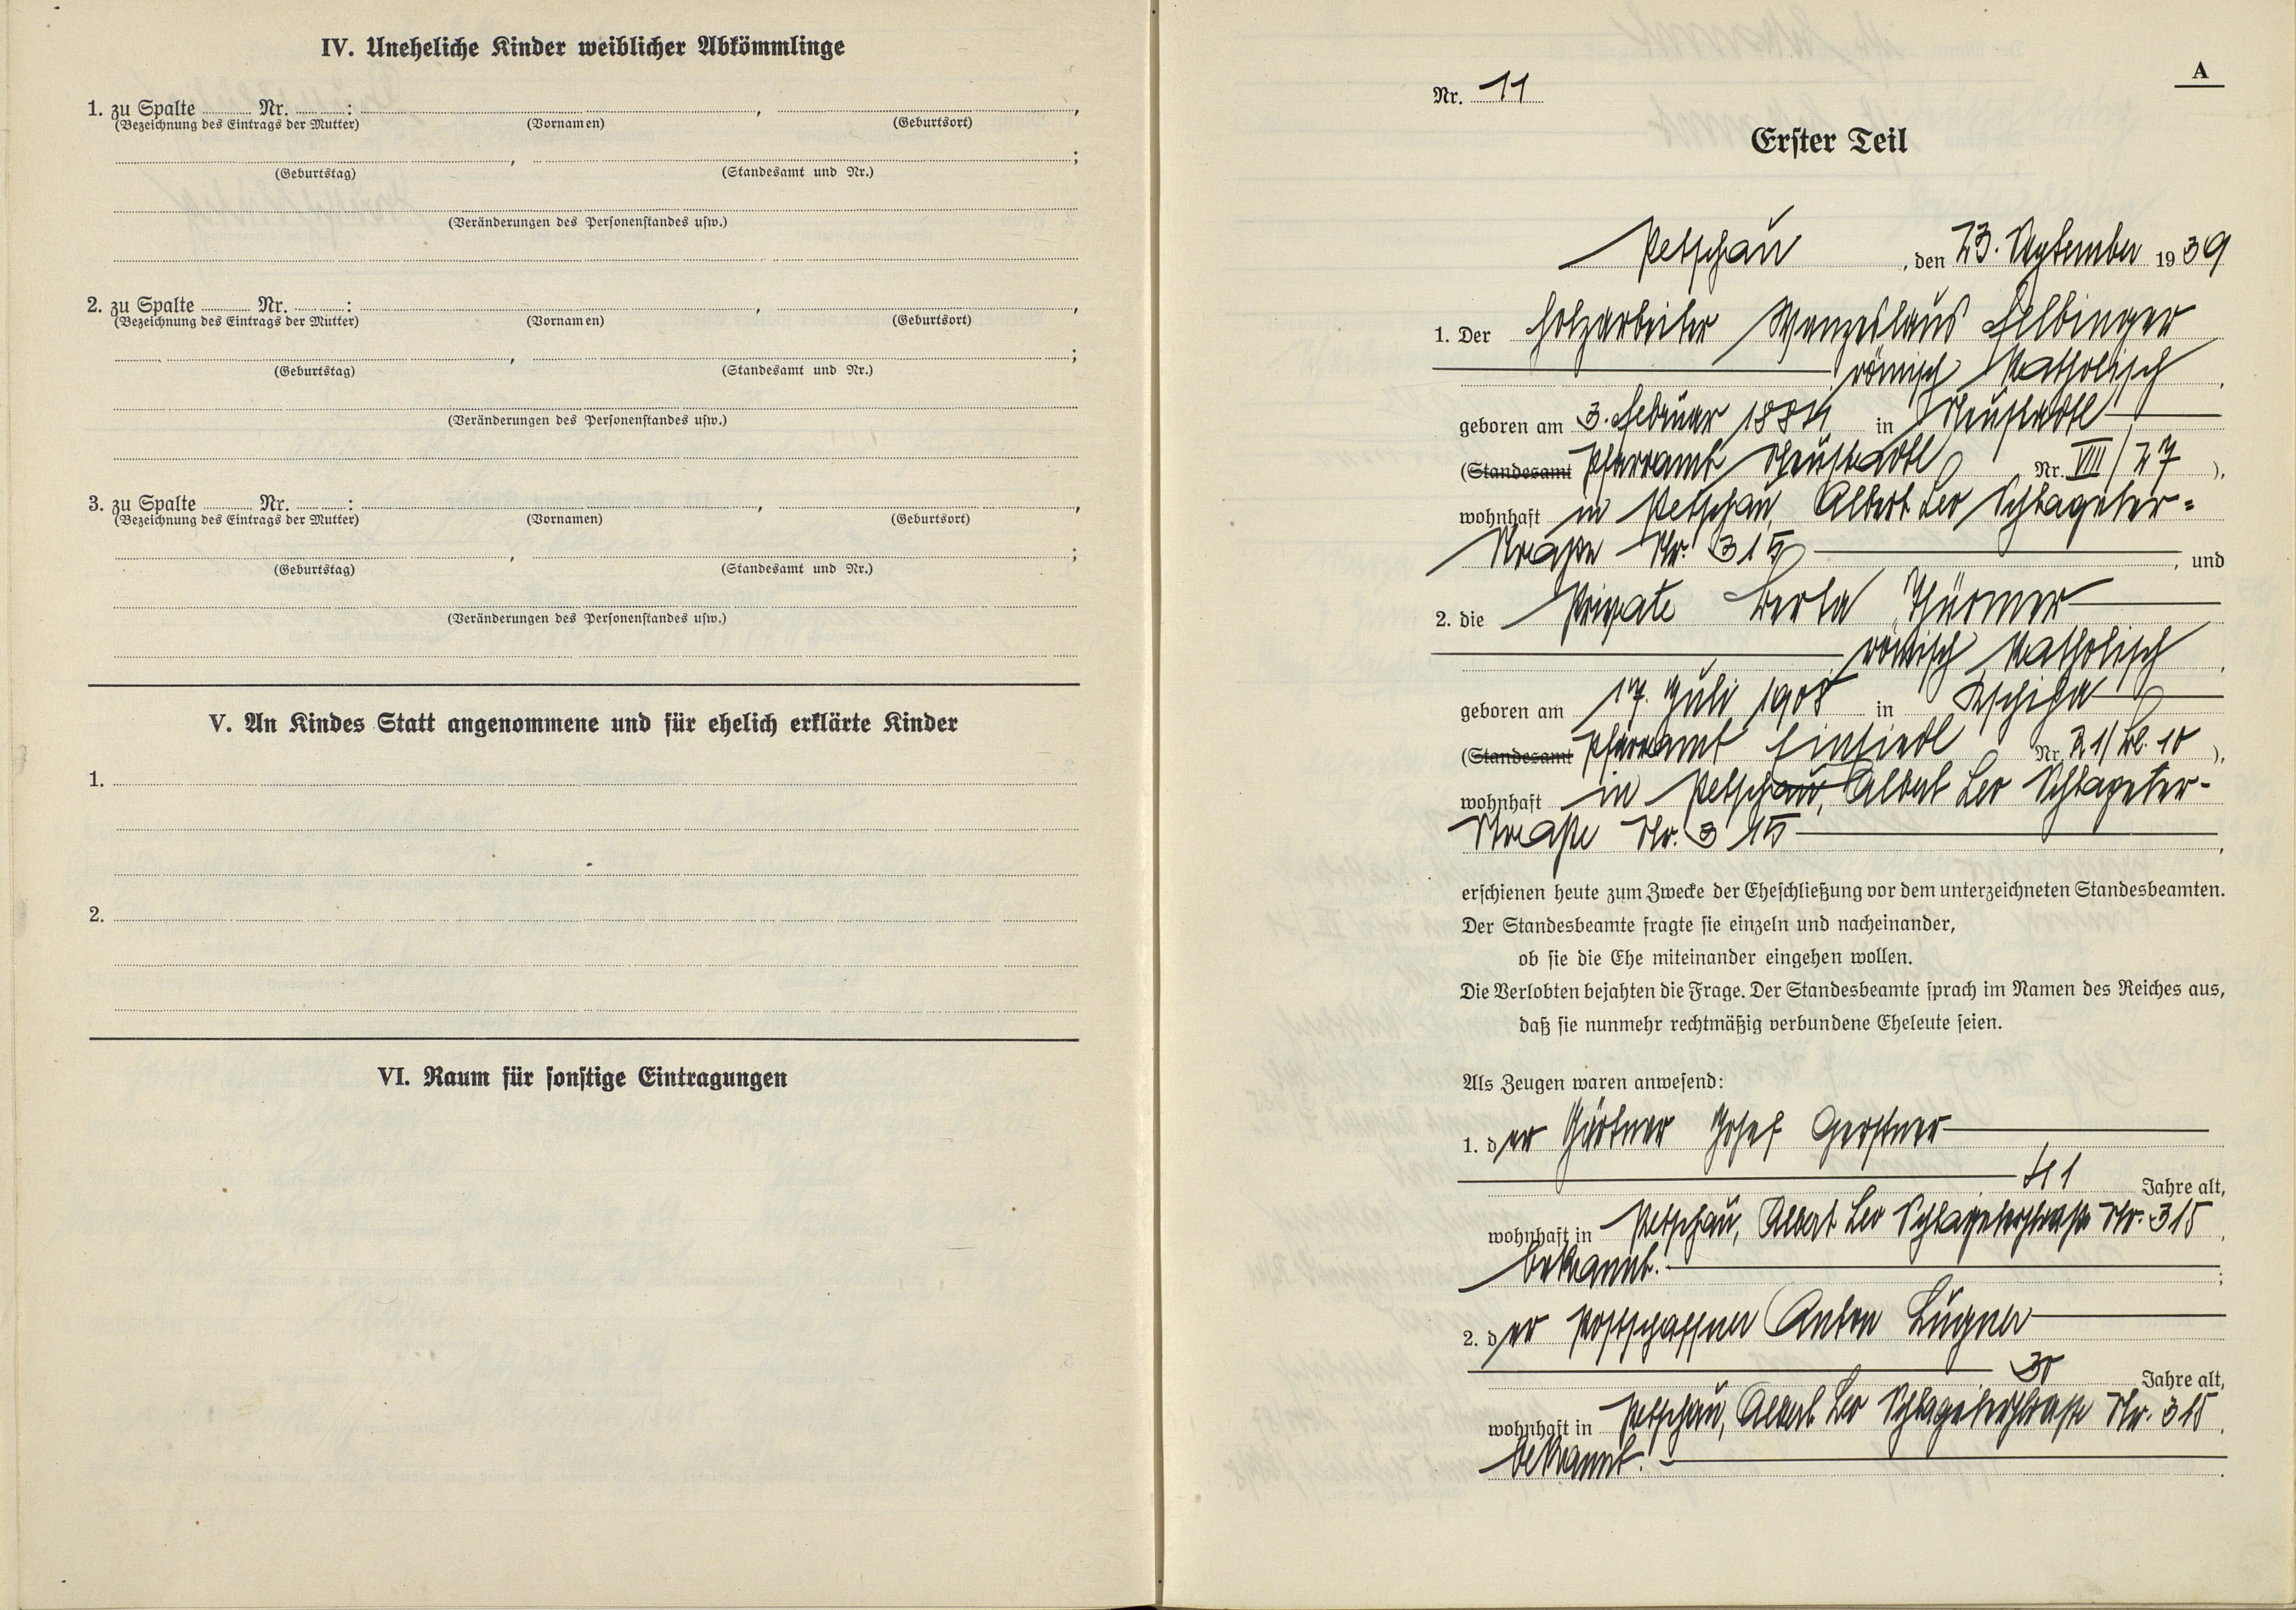 IV. Uneheliche Kinder weiblicher Abkömmlinge
1. zu Spalte Nr. : , ,
(Bezeichnung des Eintrags der Mutter) (Vornamen) (Geburtsort)
, ;
(Geburtstag) (Standesamt und Nr.)
(Veränderungen des Personenstandes usw.)
2. zu Spalte Nr. : , ,
(Bezeichnung des Eintrags der Mutter) (Vornamen) (Geburtsort)
, ;
(Geburtstag) (Standesamt und Nr.)
(Veränderungen des Personenstandes usw.)
3. zu Spalte Nr. : , ,
(Bezeichnung des Eintrags der Mutter) (Vornamen) (Geburtsort)
, ;
(Geburtstag) (Standesamt und Nr.)
(Veränderungen des Personenstandes usw.)
V. An Kindes Statt angenommene und für ehelich erklärte Kinder
1.
2.
VI. Raum für sonstige Eintragungen
A
Nr. 11
Erster Teil
Petschau, den 23. September 1939
1. Der Holzarbeiter Wenzeslaus Felbinger
römisch katholisch,
geboren am 3. Februar 1884 in Neustadtl
(Standesamt Pfarramt Neustadtl Nr. VIII/27),
wohnhaft in Petschau, Albert Leo Schlageter-
Straße Nr. 315, und
2. die Private Berta Thürmer
römisch katholisch,
geboren am 17. Juli 1908 in
(Standesamt Pfarramt Einsiedl Nr. 21/Bl. 10),
wohnhaft in Petschau, Albert Leo Schlageter-
Straße Nr. 315,
erschienen heute zum Zwecke der Eheschließung vor dem unterzeichneten Standesbeamten.
Der Standesbeamte fragte sie einzeln und nacheinander,
ob sie die Ehe miteinander eingehen wollen.
Die Verlobten bejahten die Frage. Der Standesbeamte sprach im Namen des Reiches aus,
daß sie nunmehr rechtmäßig verbundene Eheleute seien.
Als Zeugen waren anwesend:
1. der Gärtner Josef Gerstner
41 Jahre alt,
wohnhaft in Petschau, Albert Leo Schlageterstraße Nr. 315,
bekannt. ;
2. der Postschaffner Anton Lugner
Jahre alt,
wohnhaft in Petschau, Albert Leo Schlageterstraße Nr. 315,
bekannt.